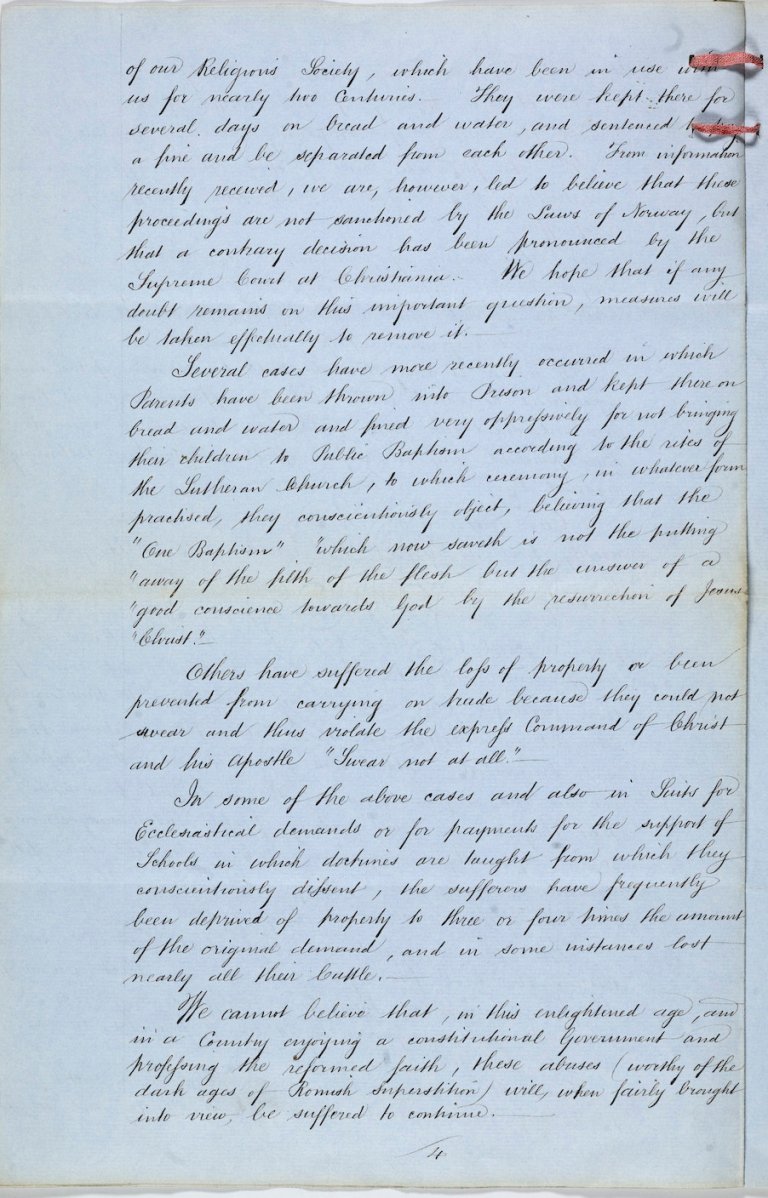 of our Religious Society, which have been in use with
us for nearly two Centuries. They were kept there for
several days on bread and water, and sentenced to pay
a fine and be separated from each other. From information
recently received, we are, however, led to believe that these
proceedings are not sanctioned by the Laws of Norway, but
that a contrary decision has been pronounced by the
Supreme Court at Christiania. We hope that if any
doubt remains on this important question, measures will
be taken effectually to remove it.—
Several cases have more recently occurred in which
Parents have been thrown into Prison and kept there on
bread and water and fined very oppressively for not bringing
their children to Public Baptism according to the rites of
the Lutheran Church, to which ceremony, in whatever form
practised, they conscientiously object, believing that the
"One Baptism" "which now saveth is not the putting
"away of the filth of the flesh but the answer of a
"good conscience towards God by the resurrection of Jesus
"Christ."—
Others have suffered the loss of property or been
prevented from carrying on trade because they could not
swear and thus violate the express Command of Christ
and his Apostle "Swear not at all."—
In some of the above cases and also in Suits for
Ecclesiastical demands or for payments for the support of
Schools in which doctrines are taught from which they
conscientiously dissent, the sufferers have frequently
been deprived of property to three or four times the amount
of the original demand, and in some instances lost
nearly all their Cattle.—
We cannot believe that, in this enlightened age, and
in a Country enjoying a constitutional Government and
professing the reformed faith, these abuses (worthy of the
dark ages of Romish superstition) will, when fairly brought
into view, be suffered to continue.—
/4